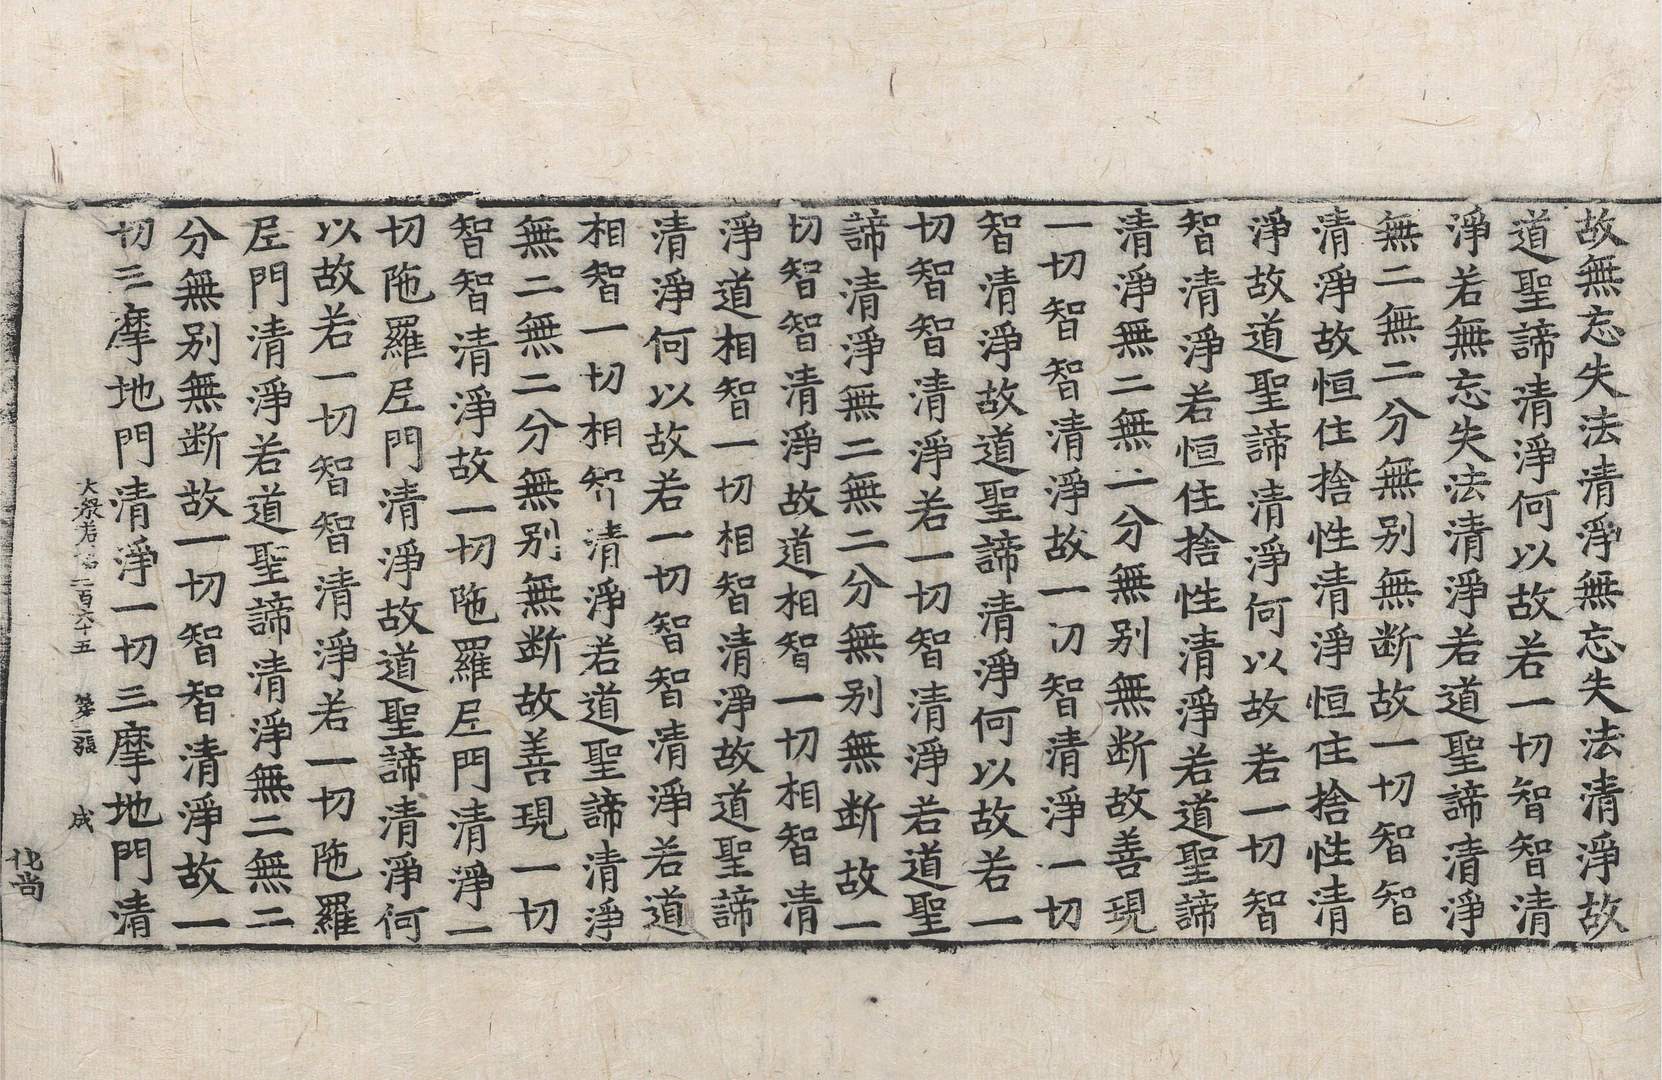 故無忘失法清淨無忘失法清淨故
道聖諦清淨何以故若一切智智清
淨若無忘失法清淨若道聖諦清淨
無二無二分無別無断故一切智智
清淨故恒住捨性清淨恒住捨性清
淨故道聖諦清淨何以故若一切智
智清淨若恒住捨性清淨若道聖諦
清淨無二無二分無別無断故善現
一切智智清淨故一切智清淨一切
智清淨故道聖諦清淨何以故若一
切智智清淨若一切智清淨若道聖
諦清淨無二無二分無別無断故一
切智智清淨故道相智一切相智清
淨道相智一切相智清淨故道聖諦
清淨何以故若一切智智清淨若道
相智一切相智清淨若道聖諦清淨
無二無二分無別無断故善現一切
智智清淨故一切陁羅尼門清淨一
切陁羅尼門清淨故道聖諦清淨何
以故若一切智智清淨若一切陁羅
尼門清淨若道聖諦清淨無二無二
分無別無断故一切智智清淨故一
切三摩地門清淨一切三摩地門清
大般若 二百六十五 第二張 成